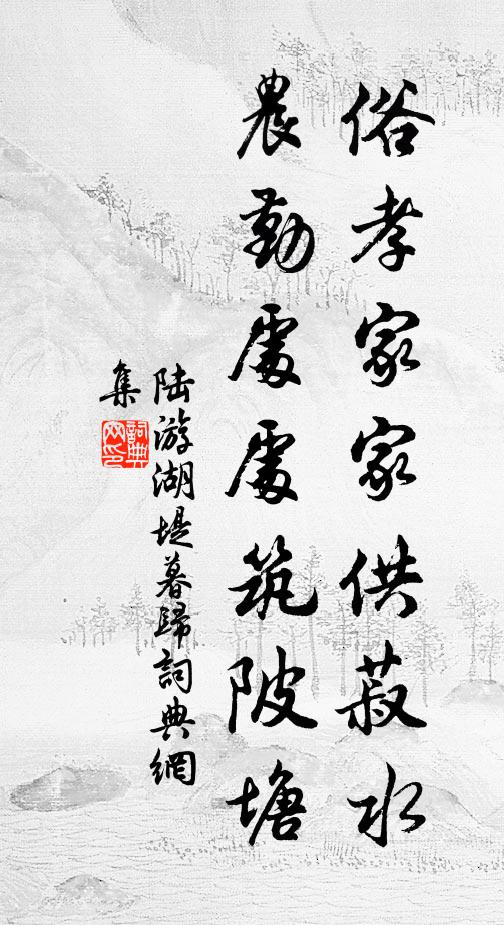 俗孝家家供菽水
農勤處處筑陂塘
陆游湖堤暮歸詞典網
集
詞典
网印